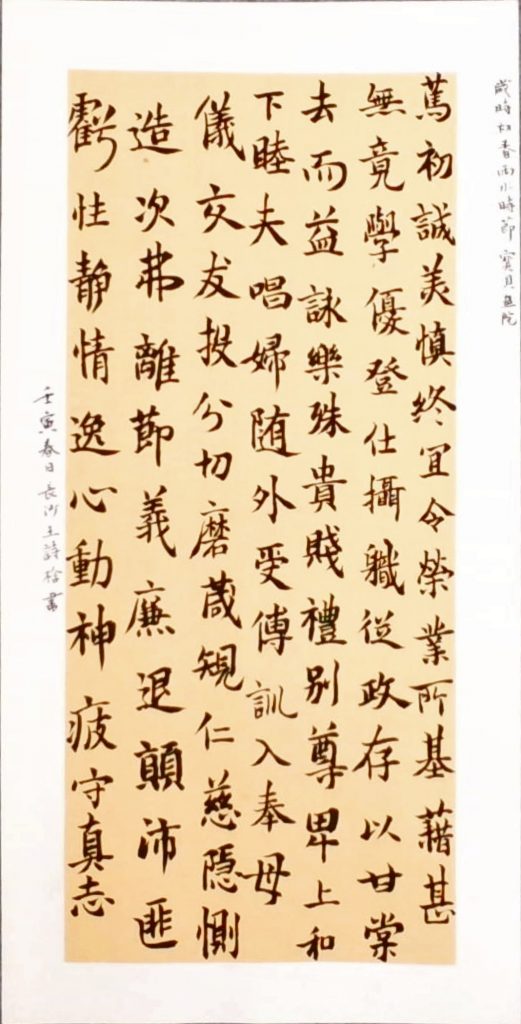 歲時春雨小時節 寶貝画院
篤初誠美慎終宜令榮業所基藉甚
無竟學優登仕攝職從政存以甘棠
去而益詠樂殊貴賤禮別尊卑上和
下睦夫唱婦随外受傅訓入奉母
儀交友投分切磨箴規仁慈隱惻
造次弗離節義廉退顛沛匪
虧性靜情逸心動神疲守真志
壬寅春日長沙王詩書